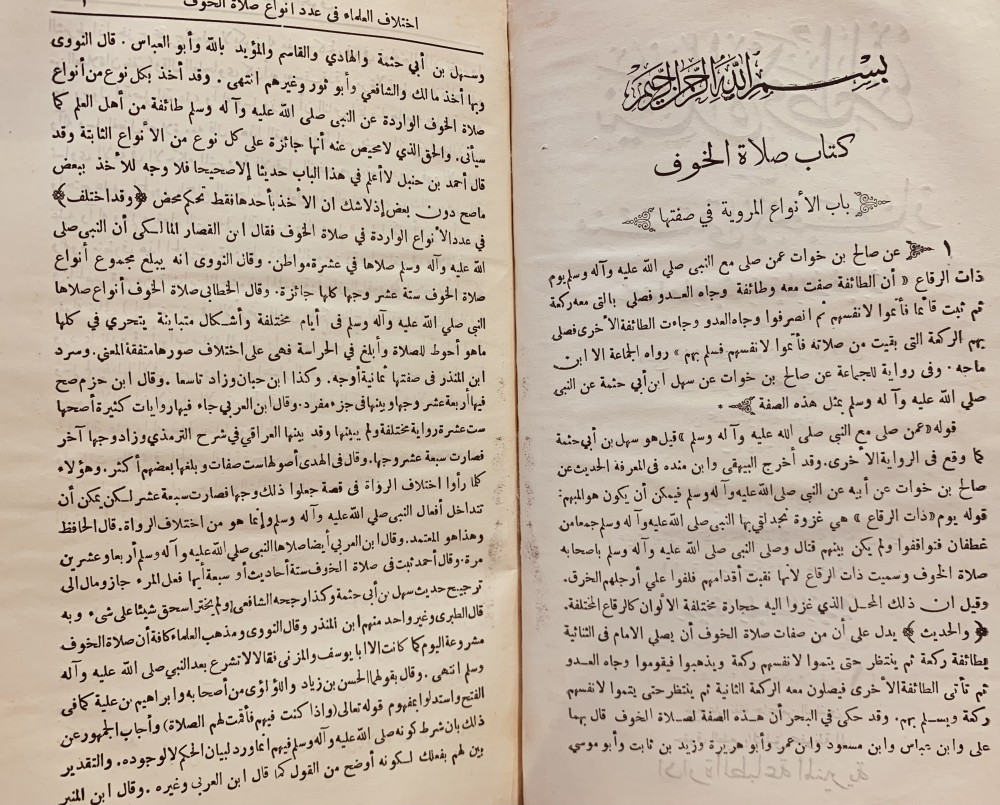 بسم الله الرحمن الرحيم
كتاب صلاة الخوف
باب الأنواع المروية في صفتها
١ عن صالح بن خوات عمن صلى مع النبى صلي الله عليه وآله وسلم يوم
ذات الرقاع « أن الطائفة صفت معه وطائفة وجاه العدو فصلى بالتى معه ركعة
ثم ثبت قائما فأتموا لانفسهم ثم انصرفوا وجاه العدو وجاءت الطائفة الأخرى فصلى
بهم الركعة التى بقيت من صلاته فأتموا لانفسهم فسلم بهم » رواه الجماعة الا ابن
ماجه . وفى رواية للجماعة عن صالح بن خوات عن سهل ابن أبى حثمة عن النبى
صلي الله عليه وآله وسلم بمثل هذه الصفة .
قوله « عمن صلى مع النبى صلى الله عليه وآله وسلم » قيل هو سهل بن أبي حثمة
كما وقع فى الرواية الأخرى . وقد أخرج البيهقى وابن منده فى المعرفة الحديث عن
صالح بن خوات عن أبيه عن النبى صلى الله عليه وآله وسلم فيمكن أن يكون هو المبهم:
قوله يوم « ذات الرقاع » هي غزوة نجد لتي بها النبى صلى الله عليه وآله وسلم جمعا من
غطفان فتواقفوا ولم يكن بينهم قتال وصلى النبى صلى الله عليه وآله وسلم باصحابه
صلاة الخوف وسميت ذات الرقاع لأنها نقبت أقدامهم فلفوا علي أرجلهم الخرق.
وقيل ان ذلك المحل الذي غزوا اليه حجارة مختلفة الألوان كالرقاع المختلفة.
﴿ والحديث ﴾ يدل على أن من صفات صلاة الخوف أن يصلي الامام فى الثنائية
بطائفة ركعة ثم ينتظر حتى يتموا لانفسهم ركعة ويذهبوا فيقوموا وجاه العدو
ثم تأتى الطائفة الأخرى فيصلون معه الركعة الثانية ثم ينتظر حتى يتموا لانفسهم
ركعة ويسلم بهم . وقد حكى في البحر أن هذه الصفة لصلاة الخوف قال بهما
على وابن عباس وابن مسعود وابن عمر وأبو هريرة وزيد بن ثابت وأبو موسي
اختلاف العلماء فى عدد أنواع صلاة الخوف
وسهل بن أبي حثمة والهادي والقاسم والمؤيد بالله وأبو العباس . قال النووى
وبها أخذ مالك والشافعي وأبو ثور وغيرهم انتهى . وقد أخذ بكل نوع من أنواع
صلاة الخوف الواردة عن النبى صلى الله عليه وآله وسلم طائفة من أهل العلم كما
سيأتى. والحق الذي لا محيص عنه أنها جائزة على كل نوع من الأنواع الثابتة وقد
قال أحمد بن حنبل لا أعلم في هذا الباب حديثا إلا صحيحا فلا وجه للأخذ ببعض
ماصح دون بعض إذ لاشك ان الأخذ بأحدها فقط تحكم محض ﴿ وقد اختلف ﴾
في عدد الأنواع الواردة في صلاة الخوف فقال ابن القصار المالكى أن النبى صلى
الله عليه وآله وسلم صلاها في عشرة مواطن. وقال النووى انه يبلغ مجموع أنواع
صلاة الخوف ستة عشر وجها كلها جائزة. وقال الخطابي صلاة الخوف أنواع صلاها
النبى صلى الله عليه وآله وسلم فى أيام مختلفة وأشكال متباينة يتحري في كلها
ماهو أحوط للصلاة وأبلغ في الحراسة فهى على اختلاف صورها متفقة المعني. وسرد
ابن المنذر فى صفتها ثمانية أوجه. وكذا ابن حبان وزاد تاسعا . وقال ابن حزم صح
فيها أربعة عشر وجها وبينها فى جزء مفرد. وقال ابن العربي جاء فيها روايات كثيرة أصحها
ست عشرة رواية مختلفة ولم يبينها وقد بينها العراقي في شرح الترمذي وزاد وجها آخر
فصارت سبعة عشر وجها. وقال فى الهدى أصولها ست صفات وبلغها بعضهم أكثر. وهؤلاء
كلما رأوا اختلاف الرواة فى قصة جعلوا ذلك وجها فصارت سبعة عشر لكن يمكن أن
تتداخل أفعال النبى صلى الله عليه وآله وسلم وإنما هو من اختلاف الرواة. قال الحافظ
وهذا هو المعتمد. وقال ابن العربي أيضا صلاها النبى صلى الله عليه وآله وسلم أربعا وعشرين
مرة. وقال أحمد ثبت فى صلاة الخوف ستة أحاديث أو سبعة أيها فعل المرء جاز ومال الى
ترجيح حديث سهل بن أبي حثمة وكذا رجحه الشافعى ولم يختر اسحق شيئا على شىء وبه
قال الطبرى وغير واحد منهم ابن المنذر وقال النووى ومذهب العلماء كافة أن صلاة الخوف
مشروعة اليوم كما كانت الا ابا يوسف والمزنى فقالا لا تشرع بعد النبي صلى الله عليه وآله
وسلم انتهى . وقال بقولهما الحسن بن زياد واللؤلؤى من أصحابه وابراهيم بن علية كما فى
الفتح واستدلوا بمفهوم قوله تعالى (وإذا كنت فيهم فأقمت لهم الصلاة) وأجاب الجمهور عن
ذلك بان شرط كونه صلى الله عليه وآله وسلم فيهم انما ورد لبيان الحكم لا لوجوده. والتقدير
بين لهم بفعلك لكونه أوضح من القول كما قال ابن العربي وغيره . وقال ابن المنير